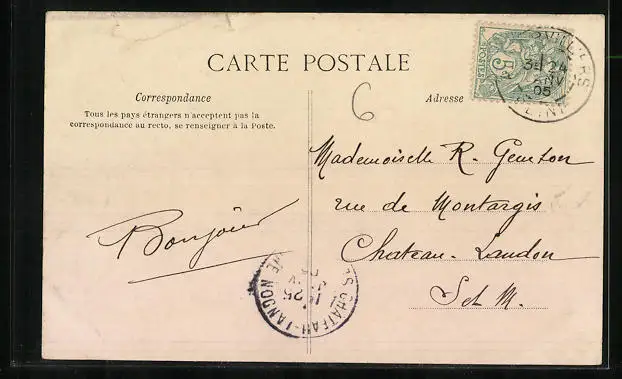 CARTE POSTALE
Correspondance
Tous les pays étrangers n'acceptent pas la
correspondance au recto, se renseigner à la Poste.
Adresse
6
5c
POSTES
24
05
Mademoiselle R.
rue de Montargis
Chateau-Landon
Set M.
Bonjour
CHATEAU-LANDON
25